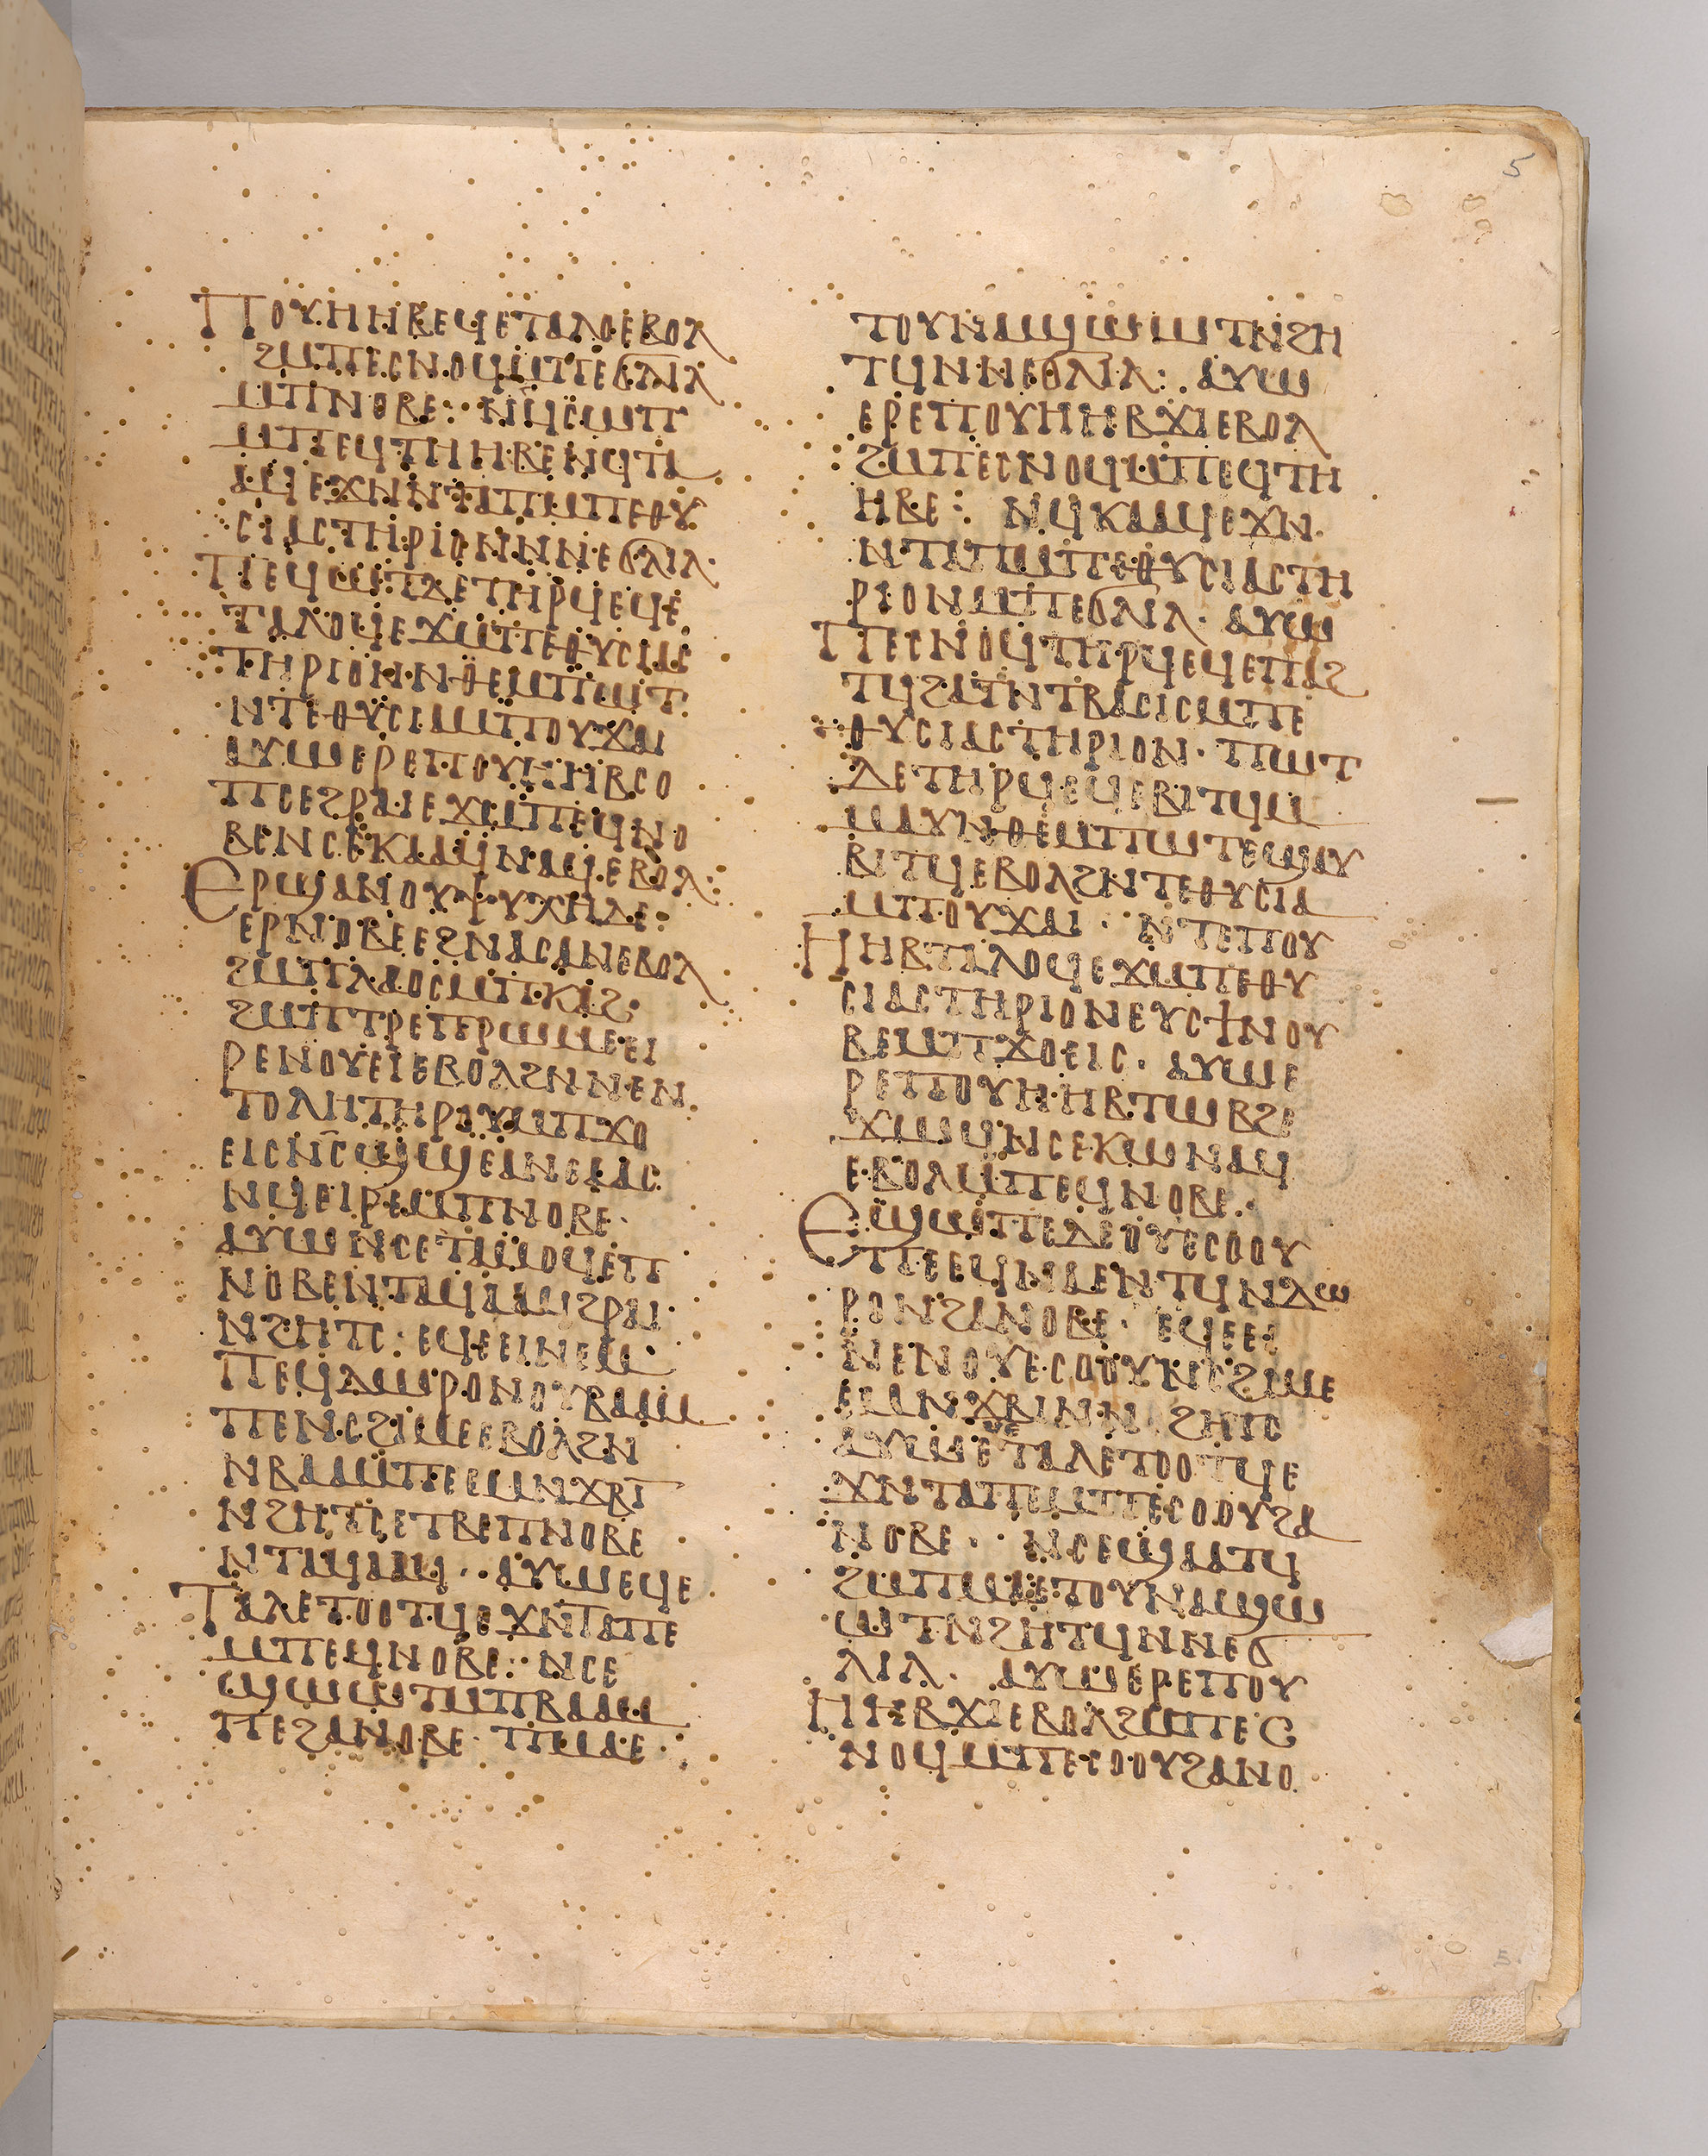 5
ⲠⲞⲨⲎⲎⲂⲈϤⲈⲦⲀⲖⲞⲈⲂⲞⲖ
ϨⲘⲠⲈⲤⲚⲞϤⲘⲠⲈϬⲖⲒⲖ
ⲘⲠⲚⲞⲂⲈ: ⲚϤⲤⲰⲠ
ⲘⲠⲈϤⲦⲎⲎⲂⲈⲚϤⲦⲀ
ⲀϤⲈϪⲚⲚⲦⲀⲠⲘⲠⲈⲐⲨ
ⲤⲒⲀⲤⲦⲎⲢⲒⲞⲚⲚⲚⲈϬⲖⲒⲖ·
ⲠⲈϤⲰⲦⲆⲈⲦⲎⲢϤⲈϤⲈ
ⲦⲀⲖⲞϤⲈϪⲘⲠⲈⲐⲨⲤⲒⲀⲤ
ⲦⲎⲢⲒⲞⲚⲚⲐⲈⲘⲠⲰⲦ
ⲚⲦⲈⲐⲨⲤⲒⲀⲘⲠⲞⲨϪⲀⲒ
ⲀⲨⲰⲈⲢⲈⲠⲞⲨⲎⲎⲂⲤⲞ
ⲠⲤⲈϨⲢⲀⲒⲈϪⲘⲠⲈϤⲚⲞ
ⲂⲈⲚⲤⲈⲔⲀⲀϤⲚⲀϤⲈⲂⲞⲖ:
ⲈⲢϢⲀⲚⲞⲨⲮⲨⲬⲎⲆⲈ:
ⲈⲢⲚⲞⲂⲈⲈϨⲚⲀⲤⲀⲚⲈⲂⲞⲖ
ϨⲘⲠⲖⲀⲞⲤⲘⲠⲔⲀϨ·
ϨⲘⲠⲦⲢⲈⲠⲈⲢⲰⲘⲈⲈⲒ
ⲢⲈⲚⲞⲨⲈⲒⲈⲂⲞⲖϨⲚⲚⲈⲚ
ⲦⲞⲖⲎⲦⲎⲢⲞⲨⲘⲠϪⲞ
ⲈⲒⲤⲚⲤϢϢⲈⲀⲚⲈⲀⲀⲤ
ⲚϤⲈⲒⲢⲈⲘⲠⲚⲞⲂⲈ·
ⲀⲨⲰⲚⲤⲈⲦⲀⲘⲞϤⲈⲠ
ⲚⲞⲂⲈⲚⲦⲀϤⲀⲀϤϨⲢⲀⲒ
ⲚϨⲎⲦϤ· ⲈϤⲈⲈⲒⲚⲈⲘ
ⲠⲈϤⲆⲰⲢⲞⲚⲞⲨⲂⲀⲀⲘ
ⲠⲈⲚⲤϨⲒⲘⲈⲈⲂⲞⲖϨⲚ
ⲚⲂⲀⲀⲘⲠⲈⲈⲘⲚϪⲂⲒ
ⲚϨⲎⲦⲤⲈⲦⲂⲈⲠⲚⲞⲂⲈ
ⲚⲦⲀϤⲀⲀϤ· ⲀⲨⲰⲈϤⲈ
ⲦⲀⲖⲈⲦⲞⲞⲦϤⲈϪⲚⲦⲀⲠⲈ
ⲘⲠⲈϤⲚⲞⲂⲈ: ⲚⲤⲈ
ϢⲰⲰⲦⲘⲠⲂⲀⲀⲘ
ⲠⲈϨⲀⲚⲞⲂⲈ· ⲠⲘⲀⲈ
ⲦⲞⲨⲚⲀϢⲰⲰⲦⲚϨⲎ
ⲦϤⲚⲚⲈϬⲖⲒⲖ: ⲀⲨⲰ
ⲈⲢⲈⲠⲞⲨⲎⲎⲂϪⲒⲈⲂⲞⲖ
ϨⲘⲠⲈⲤⲚⲞϤⲘⲠⲈϤⲦⲎ
ⲎⲂⲈ: ⲚϤⲔⲀⲀϤⲈϪⲚ
ⲚⲦⲀⲠⲘⲠⲈⲐⲨⲤⲒⲀⲤⲦⲎ
ⲢⲒⲞⲚⲘⲠⲈϬⲖⲒⲖ· ⲀⲨⲰ
ⲠⲈⲤⲚⲞϤⲦⲎⲢϤⲈϤⲈⲠⲀϨ
ⲦϤϨⲀⲦⲚⲦⲂⲀⲤⲒⲤⲘⲠⲈ
ⲐⲨⲤⲒⲀⲤⲦⲎⲢⲒⲞⲚ· ⲠⲰⲦ
ⲆⲈⲦⲎⲢϤⲈϤⲈⲂⲒⲦϤⲘ
ⲘⲀⲨⲚⲐⲈⲘⲠⲰⲦⲈϢⲀⲨ
ⲂⲒⲦϤⲈⲂⲞⲖϨⲚⲦⲈⲐⲨⲤⲒⲀ
ⲘⲠⲞⲨϪⲀⲒ· ⲚⲦⲈⲠⲞⲨ
ⲎⲎⲂⲦⲀⲖⲞϤⲈϪⲘⲠⲈⲐⲨ
ⲤⲒⲀⲤⲦⲎⲢⲒⲞⲚⲈⲨⲤϮⲚⲞⲨ
ⲂⲈⲘⲠϪⲞⲈⲒⲤ· ⲀⲨⲰⲈ
ⲢⲈⲠⲞⲨⲎⲎⲂⲦⲰⲂϨⲈ
ϪⲰϤⲚⲤⲈⲔⲰⲚⲀϤ
ⲈⲂⲞⲖⲘⲠⲈϤⲚⲞⲂⲈ·
ⲈϢⲰⲠⲈⲆⲈⲞⲨⲈⲤⲞⲞⲨ
ⲠⲈⲈϤⲚⲀⲈⲚⲦϤⲚⲆⲰ
ⲢⲞⲚϨⲀⲚⲞⲂⲈ· ⲈϤⲈⲈⲒ
ⲚⲈⲚⲞⲨⲈⲤⲞⲞⲨⲚⲤϨⲒⲘⲈ
ⲈⲘⲚϪⲂⲒⲚⲚϨⲎⲦⲤ
ⲀⲨⲰⲈϤⲈⲦⲀⲖⲈⲦⲞⲞⲦϤⲈ
ϪⲚⲦⲀⲠⲈⲘⲠⲈⲤⲞⲞⲨϨⲀ
ⲚⲞⲂⲈ· ⲚⲤⲈϢⲀⲀⲦϤ
ϨⲘⲠⲘⲀⲈⲦⲞⲨⲚⲀϢⲰ
ⲰⲦⲚϨⲎⲦϤⲚⲚⲈϬ
ⲖⲒⲖ· ⲀⲨⲰⲈⲢⲈⲠⲞⲨ
ⲎⲎⲂϪⲒⲈⲂⲞⲖϨⲘⲠⲈⲤ
ⲚⲞϤⲘⲠⲈⲤⲞⲞⲨϨⲀⲚⲞ
5.